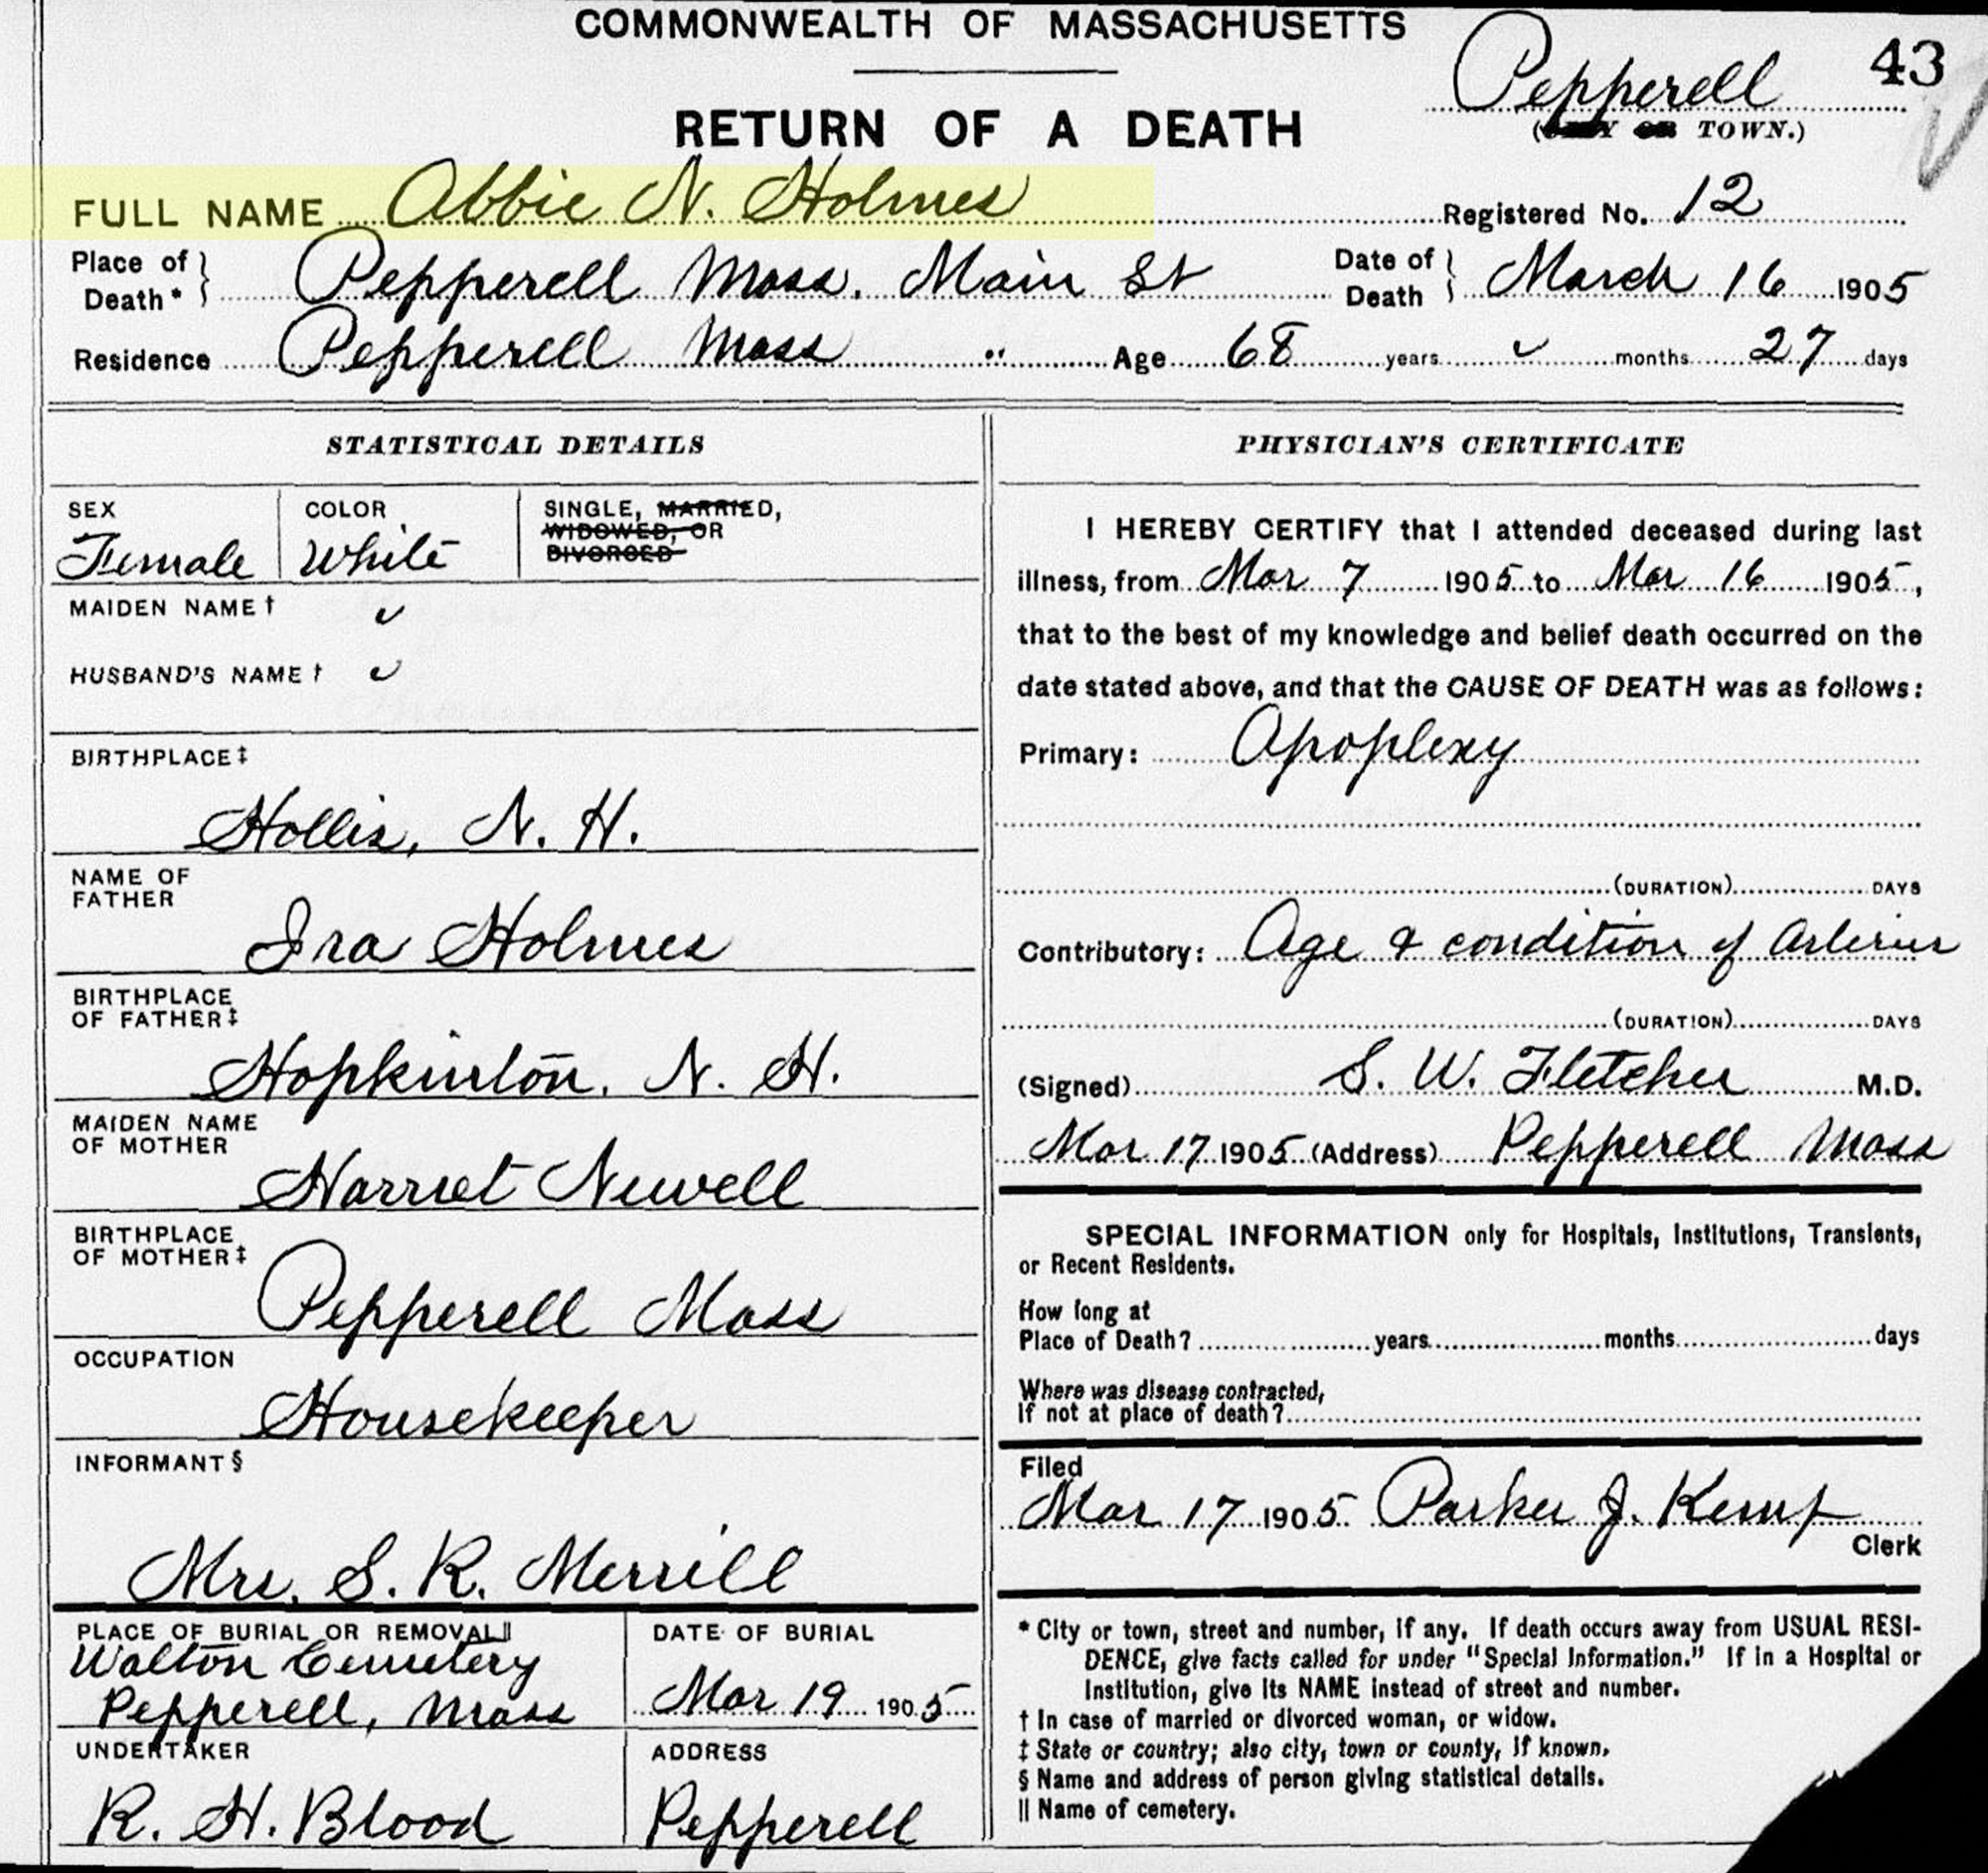 COMMONWEALTH OF MASSACHUSETTS
43
Pepperell
RETURN OF A DEATH
TOWN.)
FULL NAME Abbie N. Holmes Registered No. 12
Place of Death * Pepperell Mass. Main St Date of Death March 16 1905
Residence Pepperell Mass " Age 68 years ✓ months 27 days
STATISTICAL DETAILS
SEX COLOR SINGLE, MARRIED,
WIDOWED, OR
DIVORCED
Female White
MAIDEN NAME † ✓
HUSBAND'S NAME † ✓
BIRTHPLACE ‡
Hollis, N. H.
NAME OF
FATHER
Ira Holmes
BIRTHPLACE
OF FATHER ‡
Hopkinton, N. H.
MAIDEN NAME
OF MOTHER
Harriet Newell
BIRTHPLACE
OF MOTHER ‡
Pepperell Mass
OCCUPATION
Housekeeper
INFORMANT §
Mrs. S. R. Merrill
PLACE OF BURIAL OR REMOVAL ||
Walton Cemetery
Pepperell, Mass
DATE OF BURIAL
Mar 19 1905
UNDERTAKER
R. H. Blood
ADDRESS
Pepperell
PHYSICIAN'S CERTIFICATE
I HEREBY CERTIFY that I attended deceased during last
illness, from Mar 7 1905 to Mar 16 1905,
that to the best of my knowledge and belief death occurred on the
date stated above, and that the CAUSE OF DEATH was as follows:
Primary: Apoplexy
(DURATION) DAYS
Contributory: Age & condition of Arteries
(DURATION) DAYS
(Signed) S. W. Fletcher M.D.
Mar 17 1905 (Address) Pepperell Mass
SPECIAL INFORMATION only for Hospitals, Institutions, Transients,
or Recent Residents.
How long at
Place of Death? years months days
Where was disease contracted,
If not at place of death?
Filed
Mar 17 1905 Parker J. Kemp
Clerk
* City or town, street and number, if any. If death occurs away from USUAL RESI-
DENCE, give facts called for under "Special Information." If in a Hospital or
Institution, give its NAME instead of street and number.
† In case of married or divorced woman, or widow.
‡ State or country; also city, town or county, if known.
§ Name and address of person giving statistical details.
|| Name of cemetery.